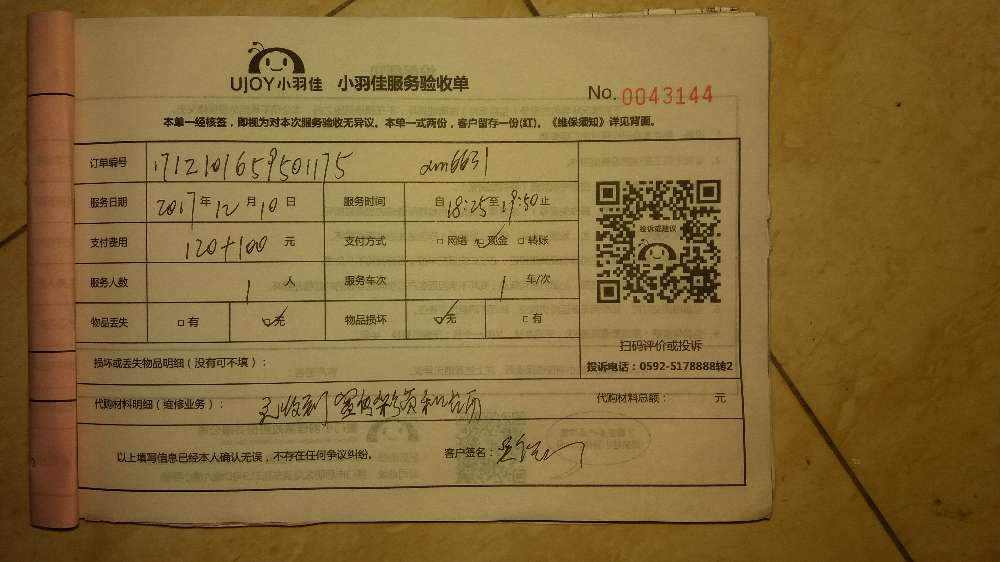 UJOY小羽佳 小羽佳服务验收单
No. 0043144
本单一经核签，即视为对本次服务验收无异议。本单一式两份，客户留存一份(红)。《维保须知》详见背面。
订单编号 1712101659501175 dm6631
服务日期 2017年12月10日 服务时间 自18:25至19:50止
支付费用 120+100 元 支付方式 □网络 ☑现金 □转账
服务人数 1 人 服务车次 1 车/次
物品丢失 □有 ☑无 物品损坏 ☑无 □有
投诉或建议
扫码评价或投诉
投诉电话：0592-5178888转2
损坏或丢失物品明细（没有可不填）：
代购材料明细（维修业务）： 代购材料总额： 元
以上填写信息已经本人确认无误，不存在任何争议纠纷。 客户签名：